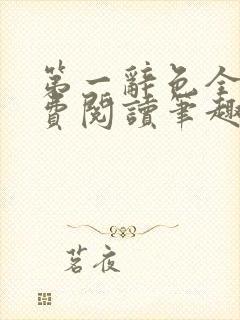 第一辭色全
費閱讀筆趣
茗夜